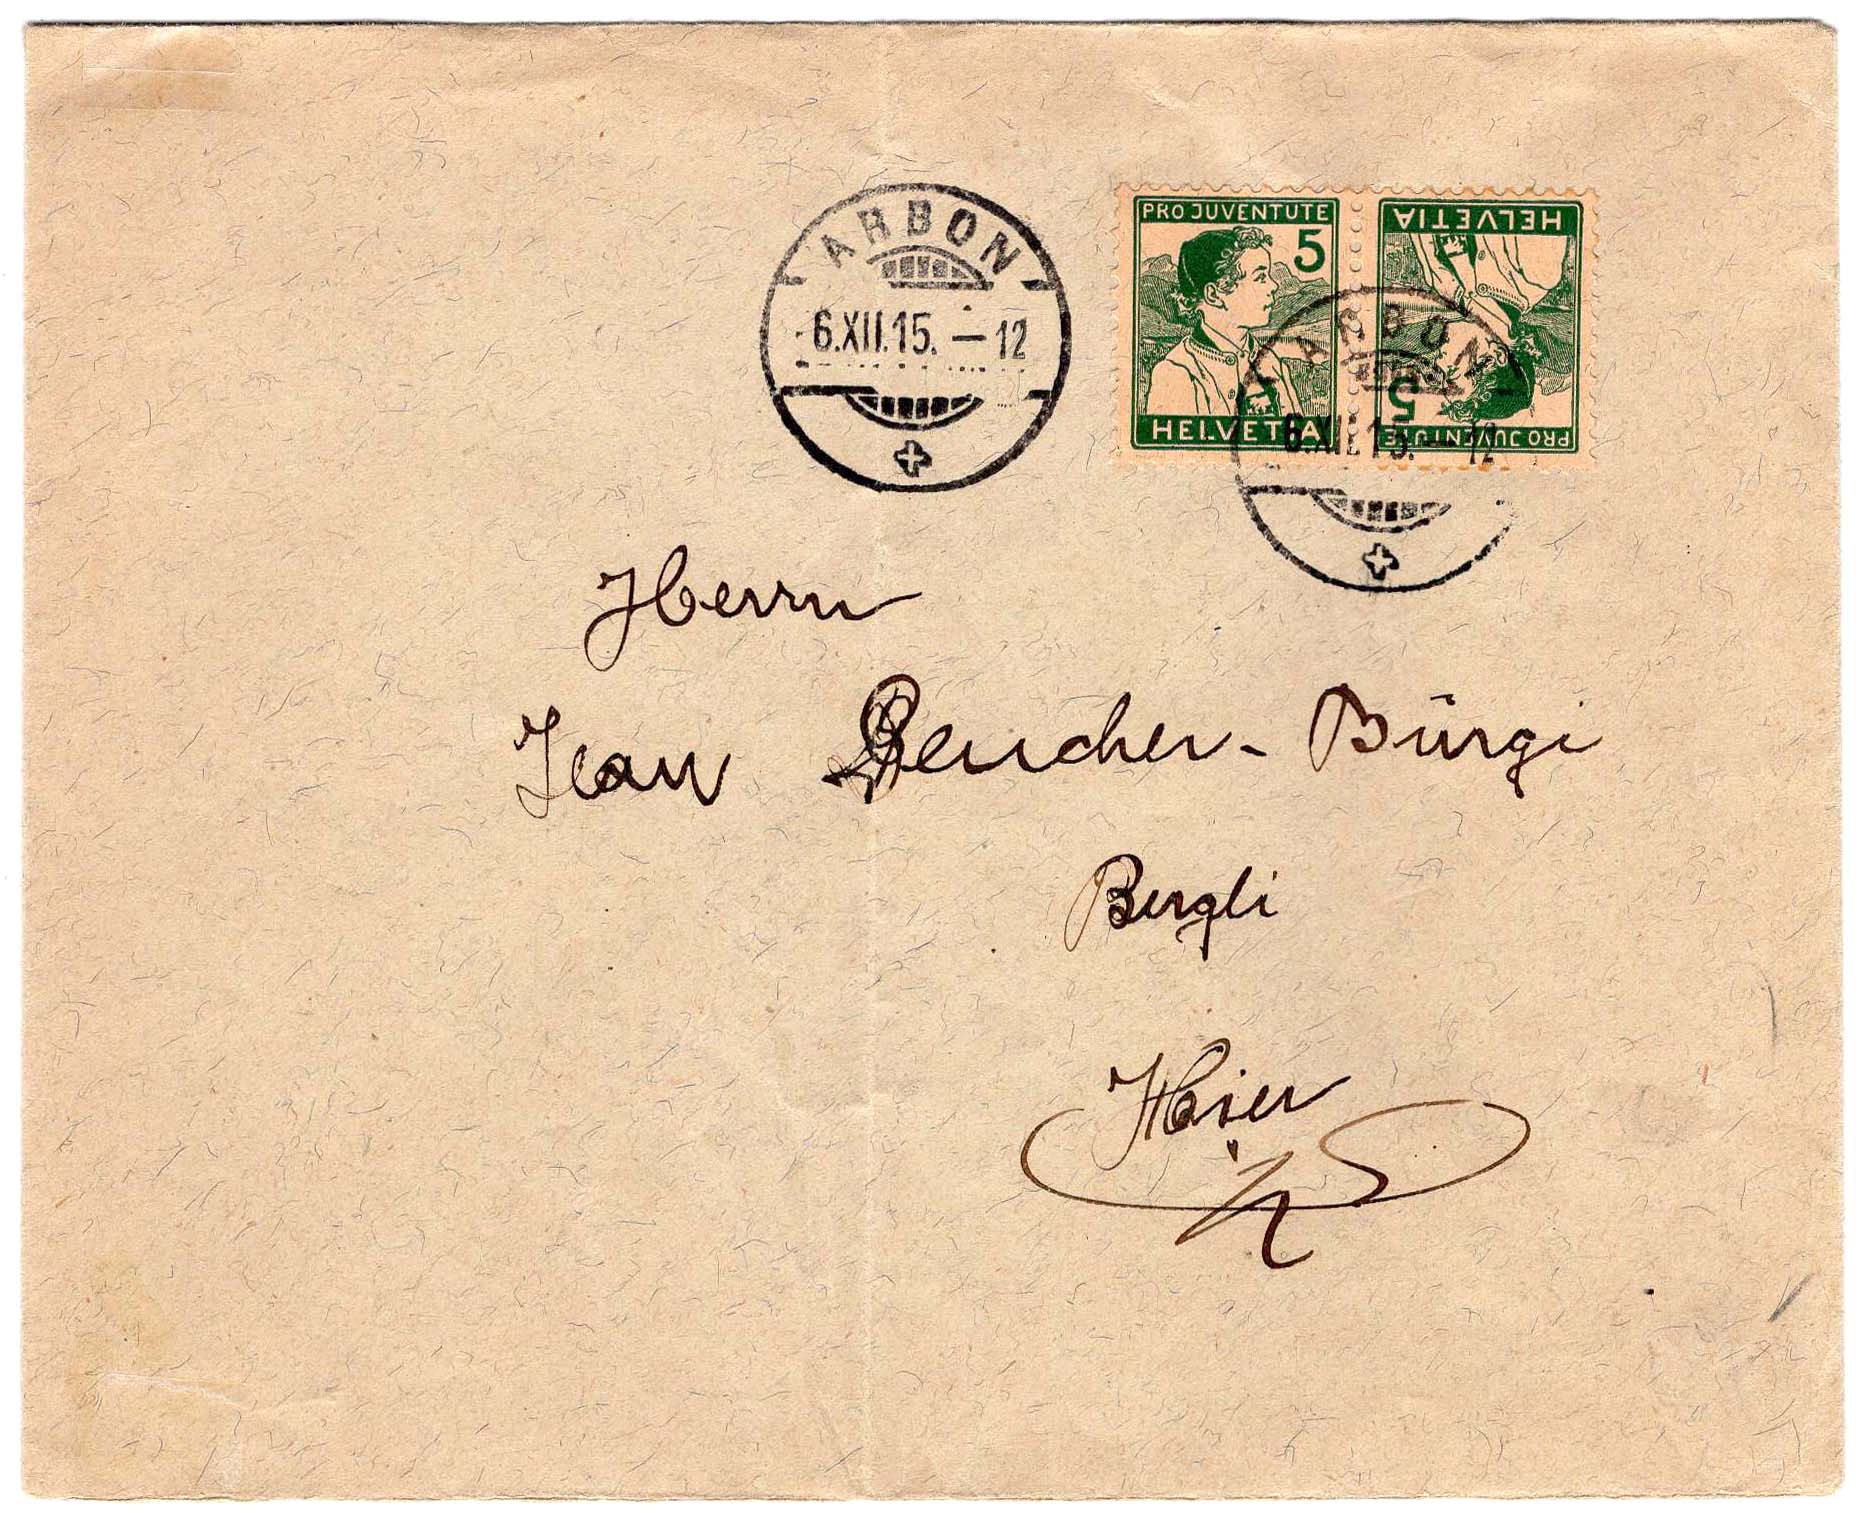 ARBON
6.XII.15. — 12
PRO JUVENTUTE
5
HELVETIA
HELVETIA
5
PRO JUVENTUTE
ARBON
6.XII.15. — 12
Herrn
Jean Beucher-Bürgi
Bergli
Hier